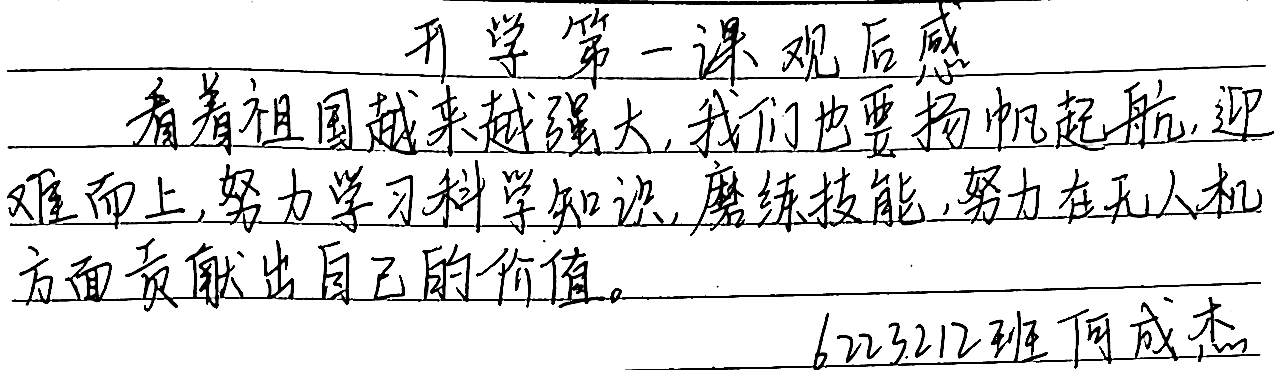 开学第一课观后感
看着祖国越来越强大,我们也要扬帆起航,迎
难而上,努力学习科学知识,磨练技能,努力在无人机
方面贡献出自己的价值。
6223212班何成杰